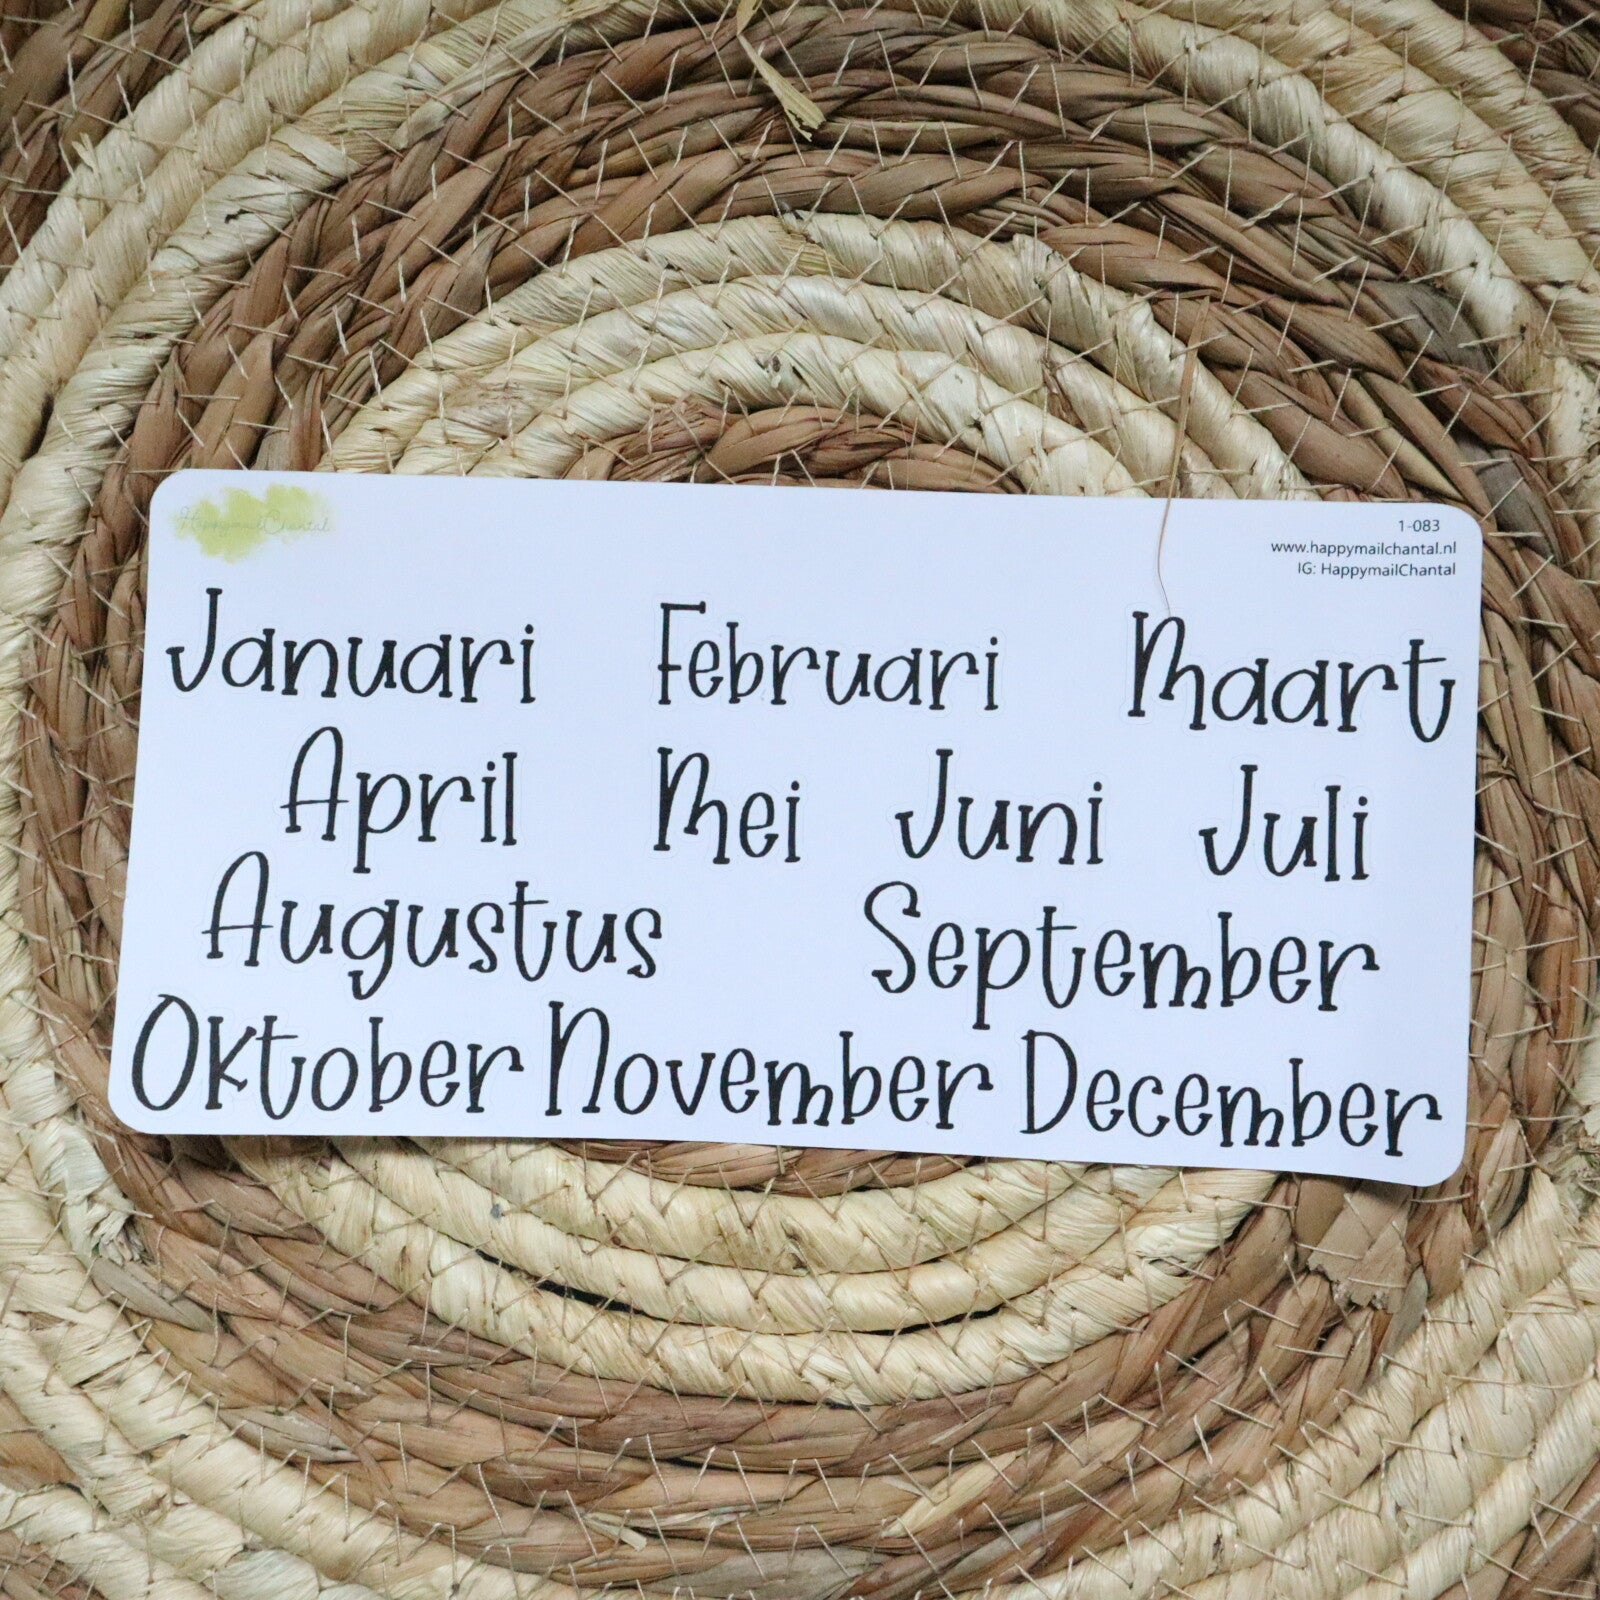 HappymailChantal
1-083
www.happymailchantal.nl
IG: HappymailChantal
Januari Februari Maart
April Mei Juni Juli
Augustus September
Oktober November December